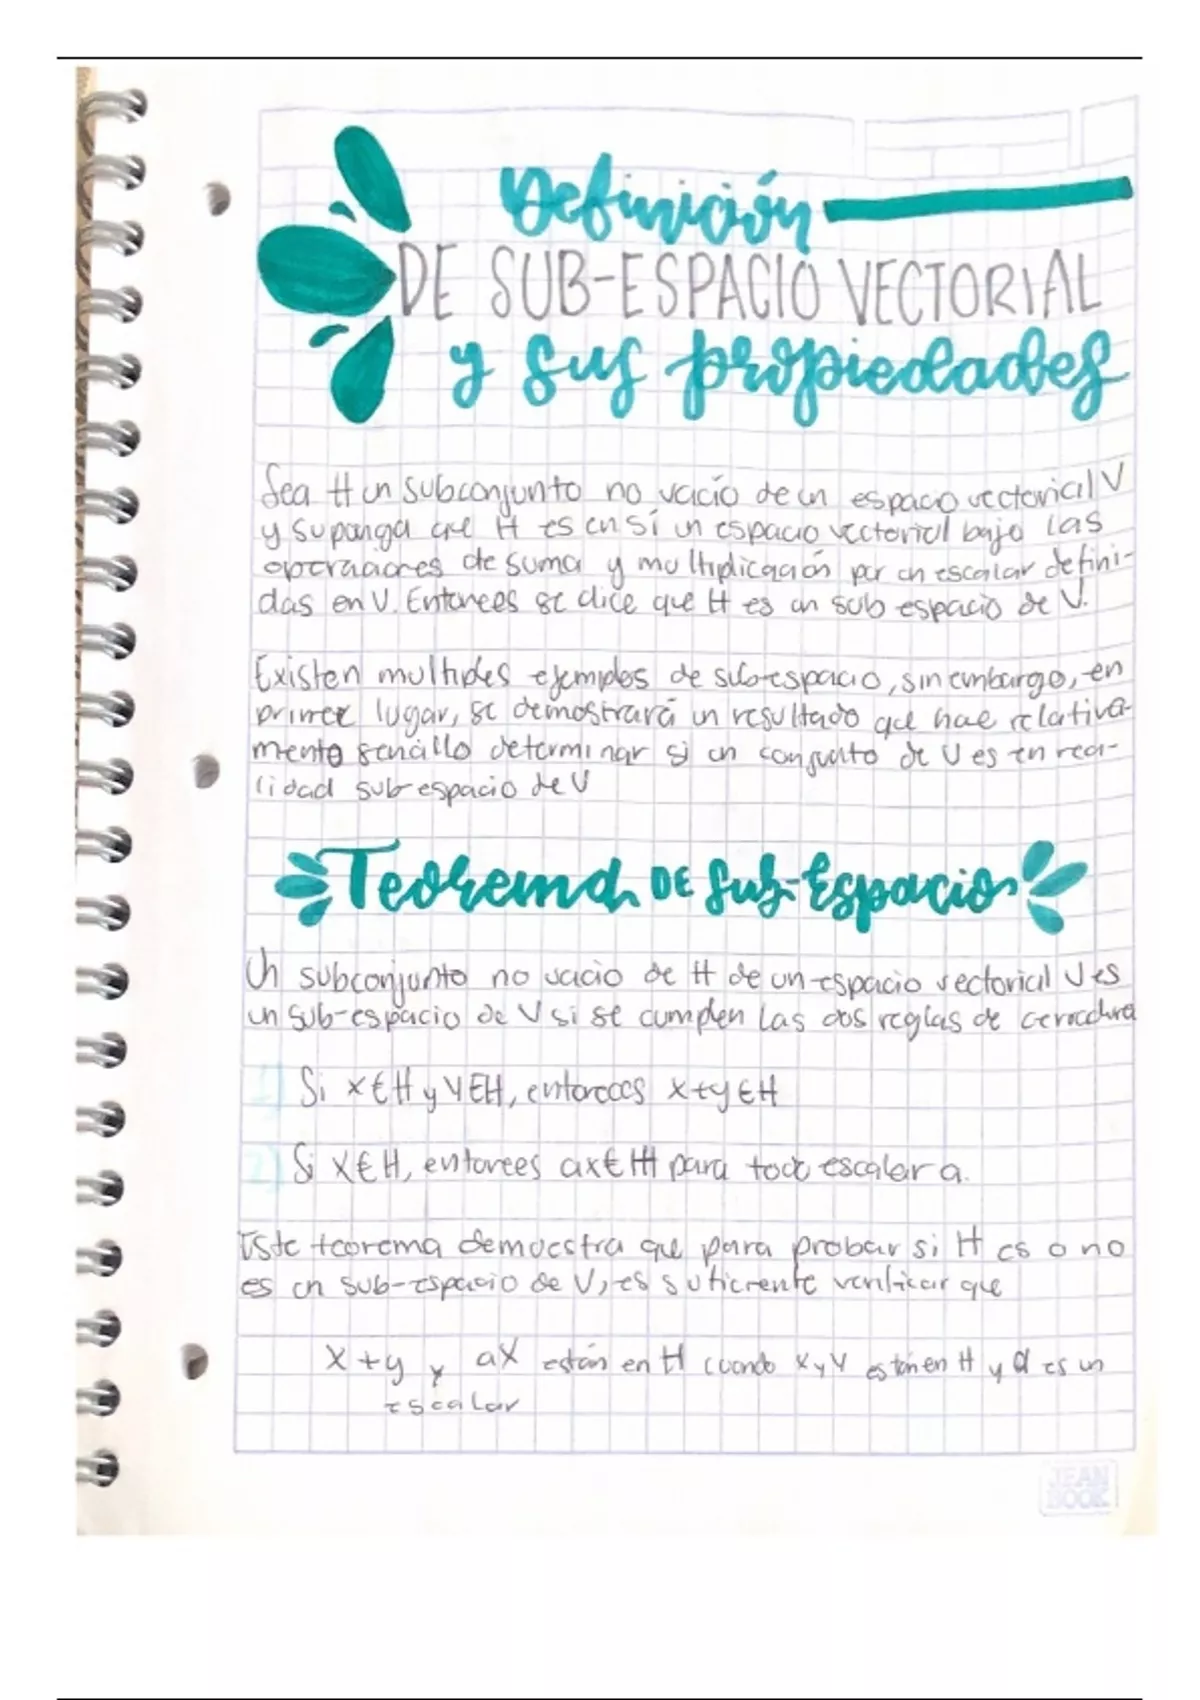 Definición
DE SUB-ESPACIO VECTORIAL
y sus propiedades
Sea H un subconjunto no vacío de un espacio vectorial V
y suponga que H es en sí un espacio vectorial bajo las
operaciones de suma y multiplicación por un escalar defini-
das en V. Entonces se dice que H es un sub espacio de V.
Existen multiples ejemplos de sub-espacio, sin embargo, en
primer lugar, se demostrará un resultado que hace relativa-
mente sencillo determinar si un conjunto de V es en rea-
lidad sub-espacio de V
Teorema DE Sub-Espacios
Un subconjunto no vacio de H de un espacio vectorial V es
un sub-espacio de V si se cumplen las dos reglas de cerradura
1) Si x∈H y y∈H, entonces x+y∈H
2) Si x∈H, entonces ax∈H para todo escalar a.
Este teorema demuestra que para probar si H es o no
es un sub-espacio de V, es suficiente verificar que
x+y y ax están en H cuando x y y están en H y a es un
escalar
JEAN
BOOK